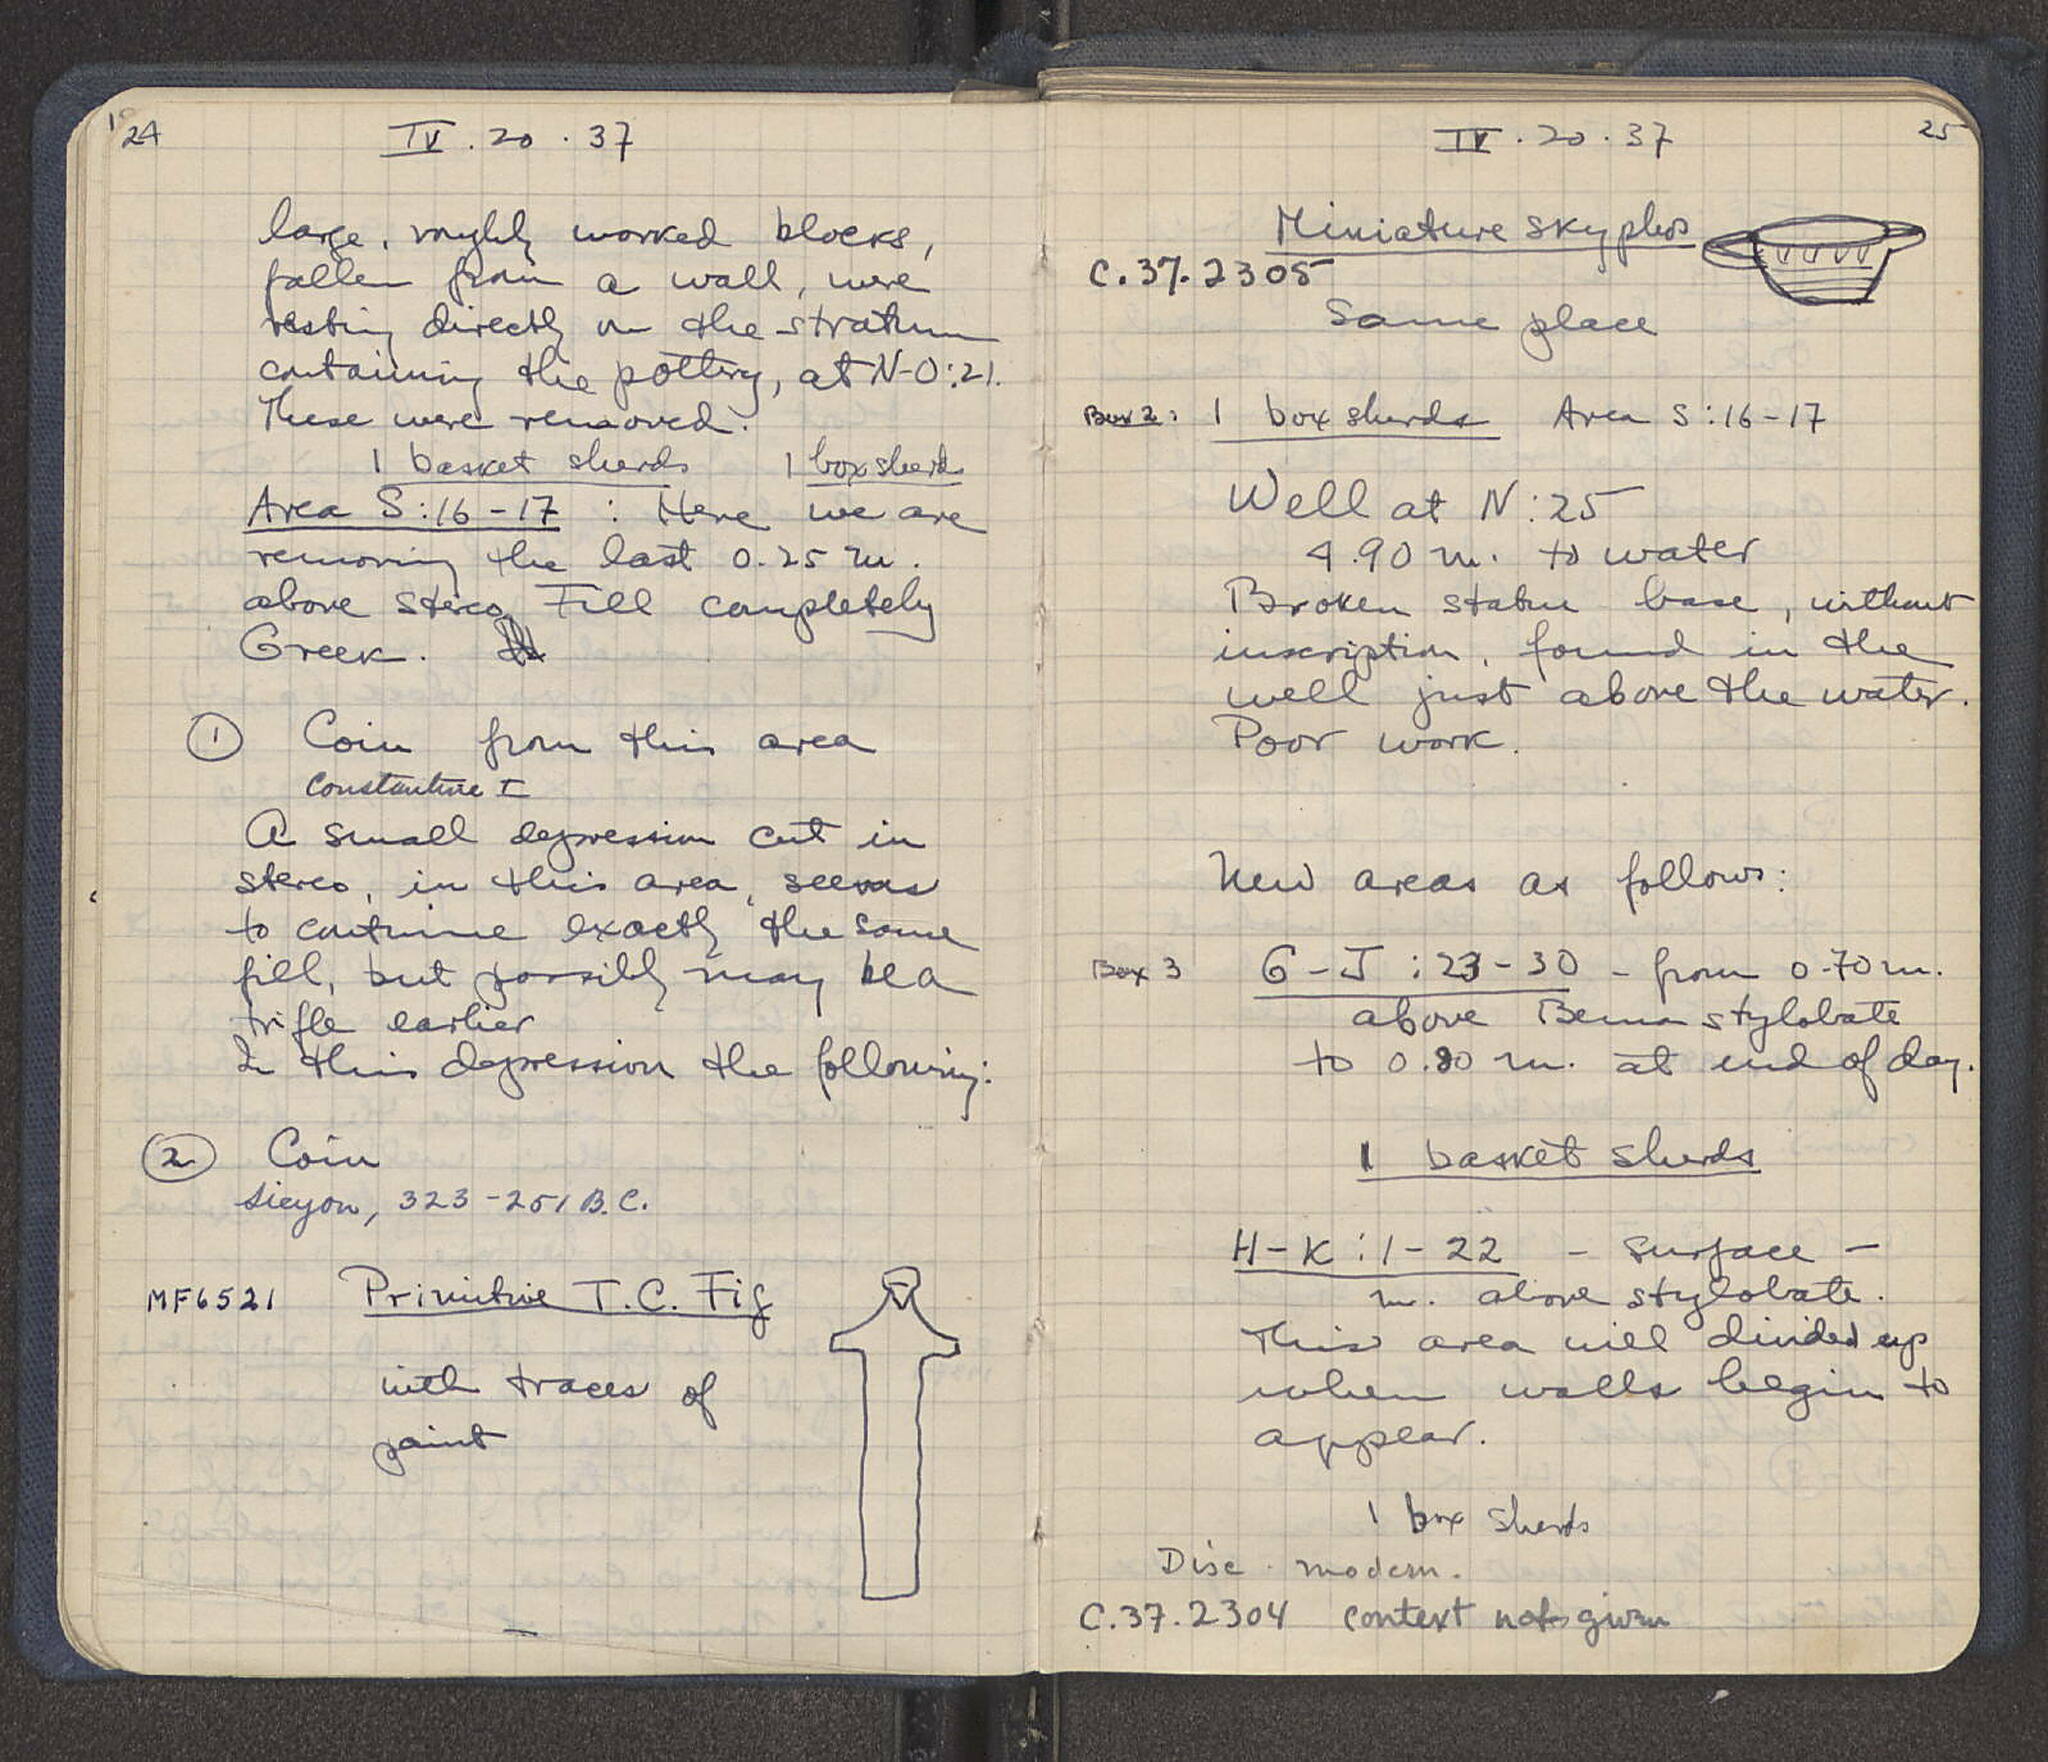 24
IV . 20 . 37
large, roughly worked blocks,
fallen from a wall, were
resting directly on the stratum
containing the pottery, at N-O:21.
These were removed.
1 basket sherds 1 box sherds
Area S:16-17 : Here we are
removing the last 0.25 m.
above stereo. Fill completely
Greek.
① Coin from this area
Constantine I
A small depression cut in
stereo, in this area, seems
to continue exactly the same
fill, but possibly may be a
trifle earlier
In this depression the following:
② Coin
Sicyon, 323-251 B.C.
MF6521 Primitive T.C. Fig
with traces of
paint
IV . 20 . 37
25
Miniature skyphos
C.37.2305
Same place
Box 2: 1 box sherds Area S:16-17
Well at N:25
4.90 m. to water
Broken statue base, without
inscription, found in the
well just above the water.
Poor work.
New areas as follows:
Box 3 G-J:23-30 - from 0.70 m.
above Bema stylobate
to 0.80 m. at end of day.
1 basket sherds
H-K:1-22 - surface -
m. above stylobate.
This area will divided up
when walls begin to
appear.
1 box sherds
Disc. modern.
C.37.2304 context not given